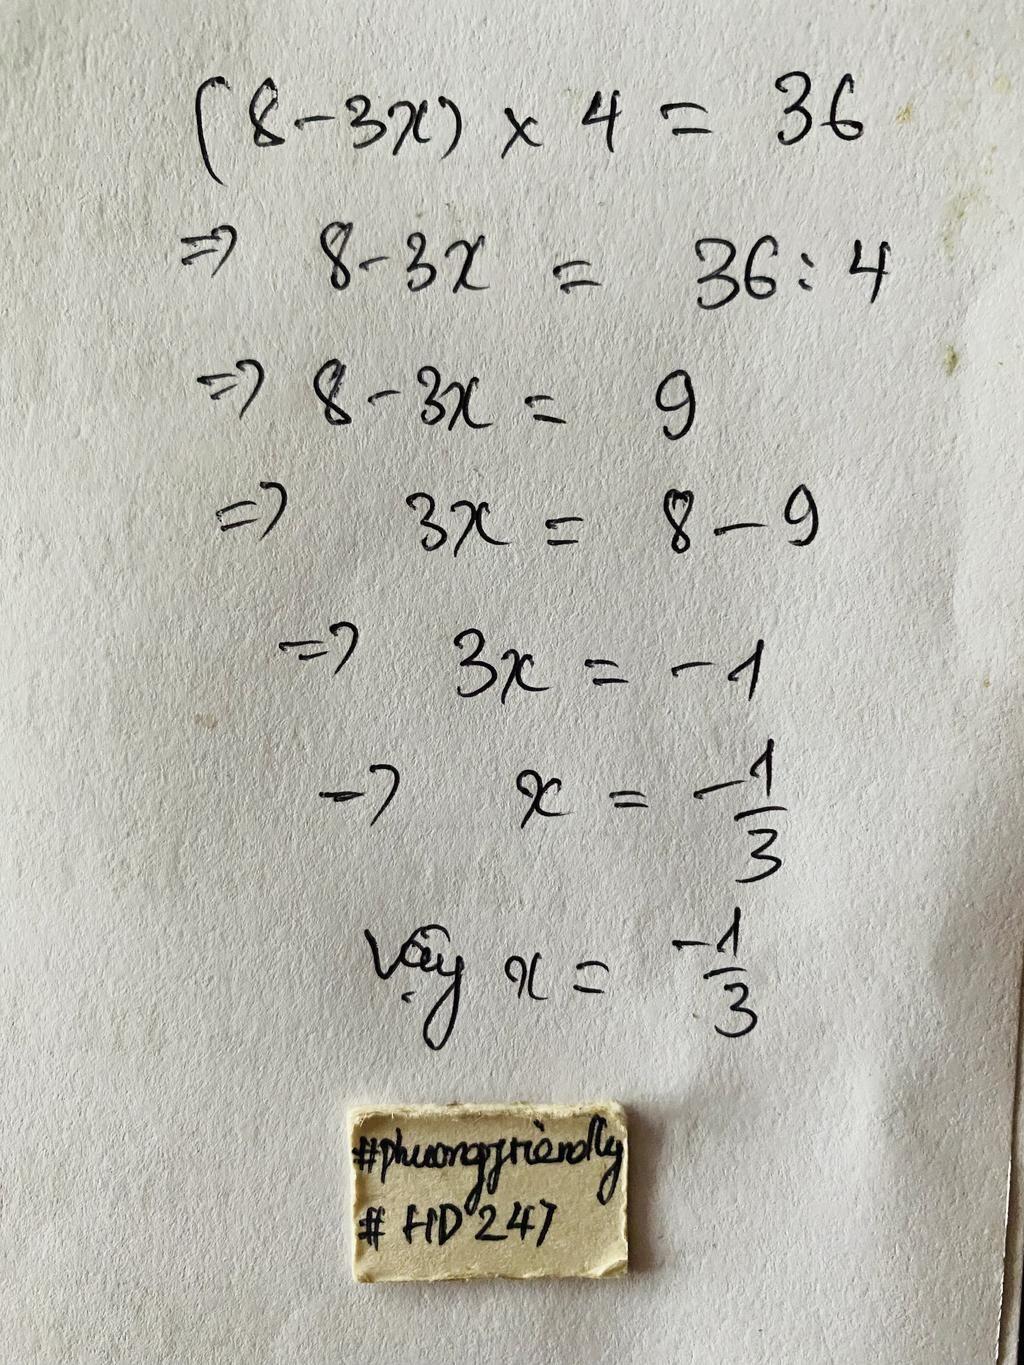 (8-3x) × 4 = 36
=> 8-3x = 36 : 4
=> 8-3x = 9
=> 3x = 8-9
=> 3x = -1
-> x = -1/3
Vậy x = -1/3
#phuongfriendly
# HD 247